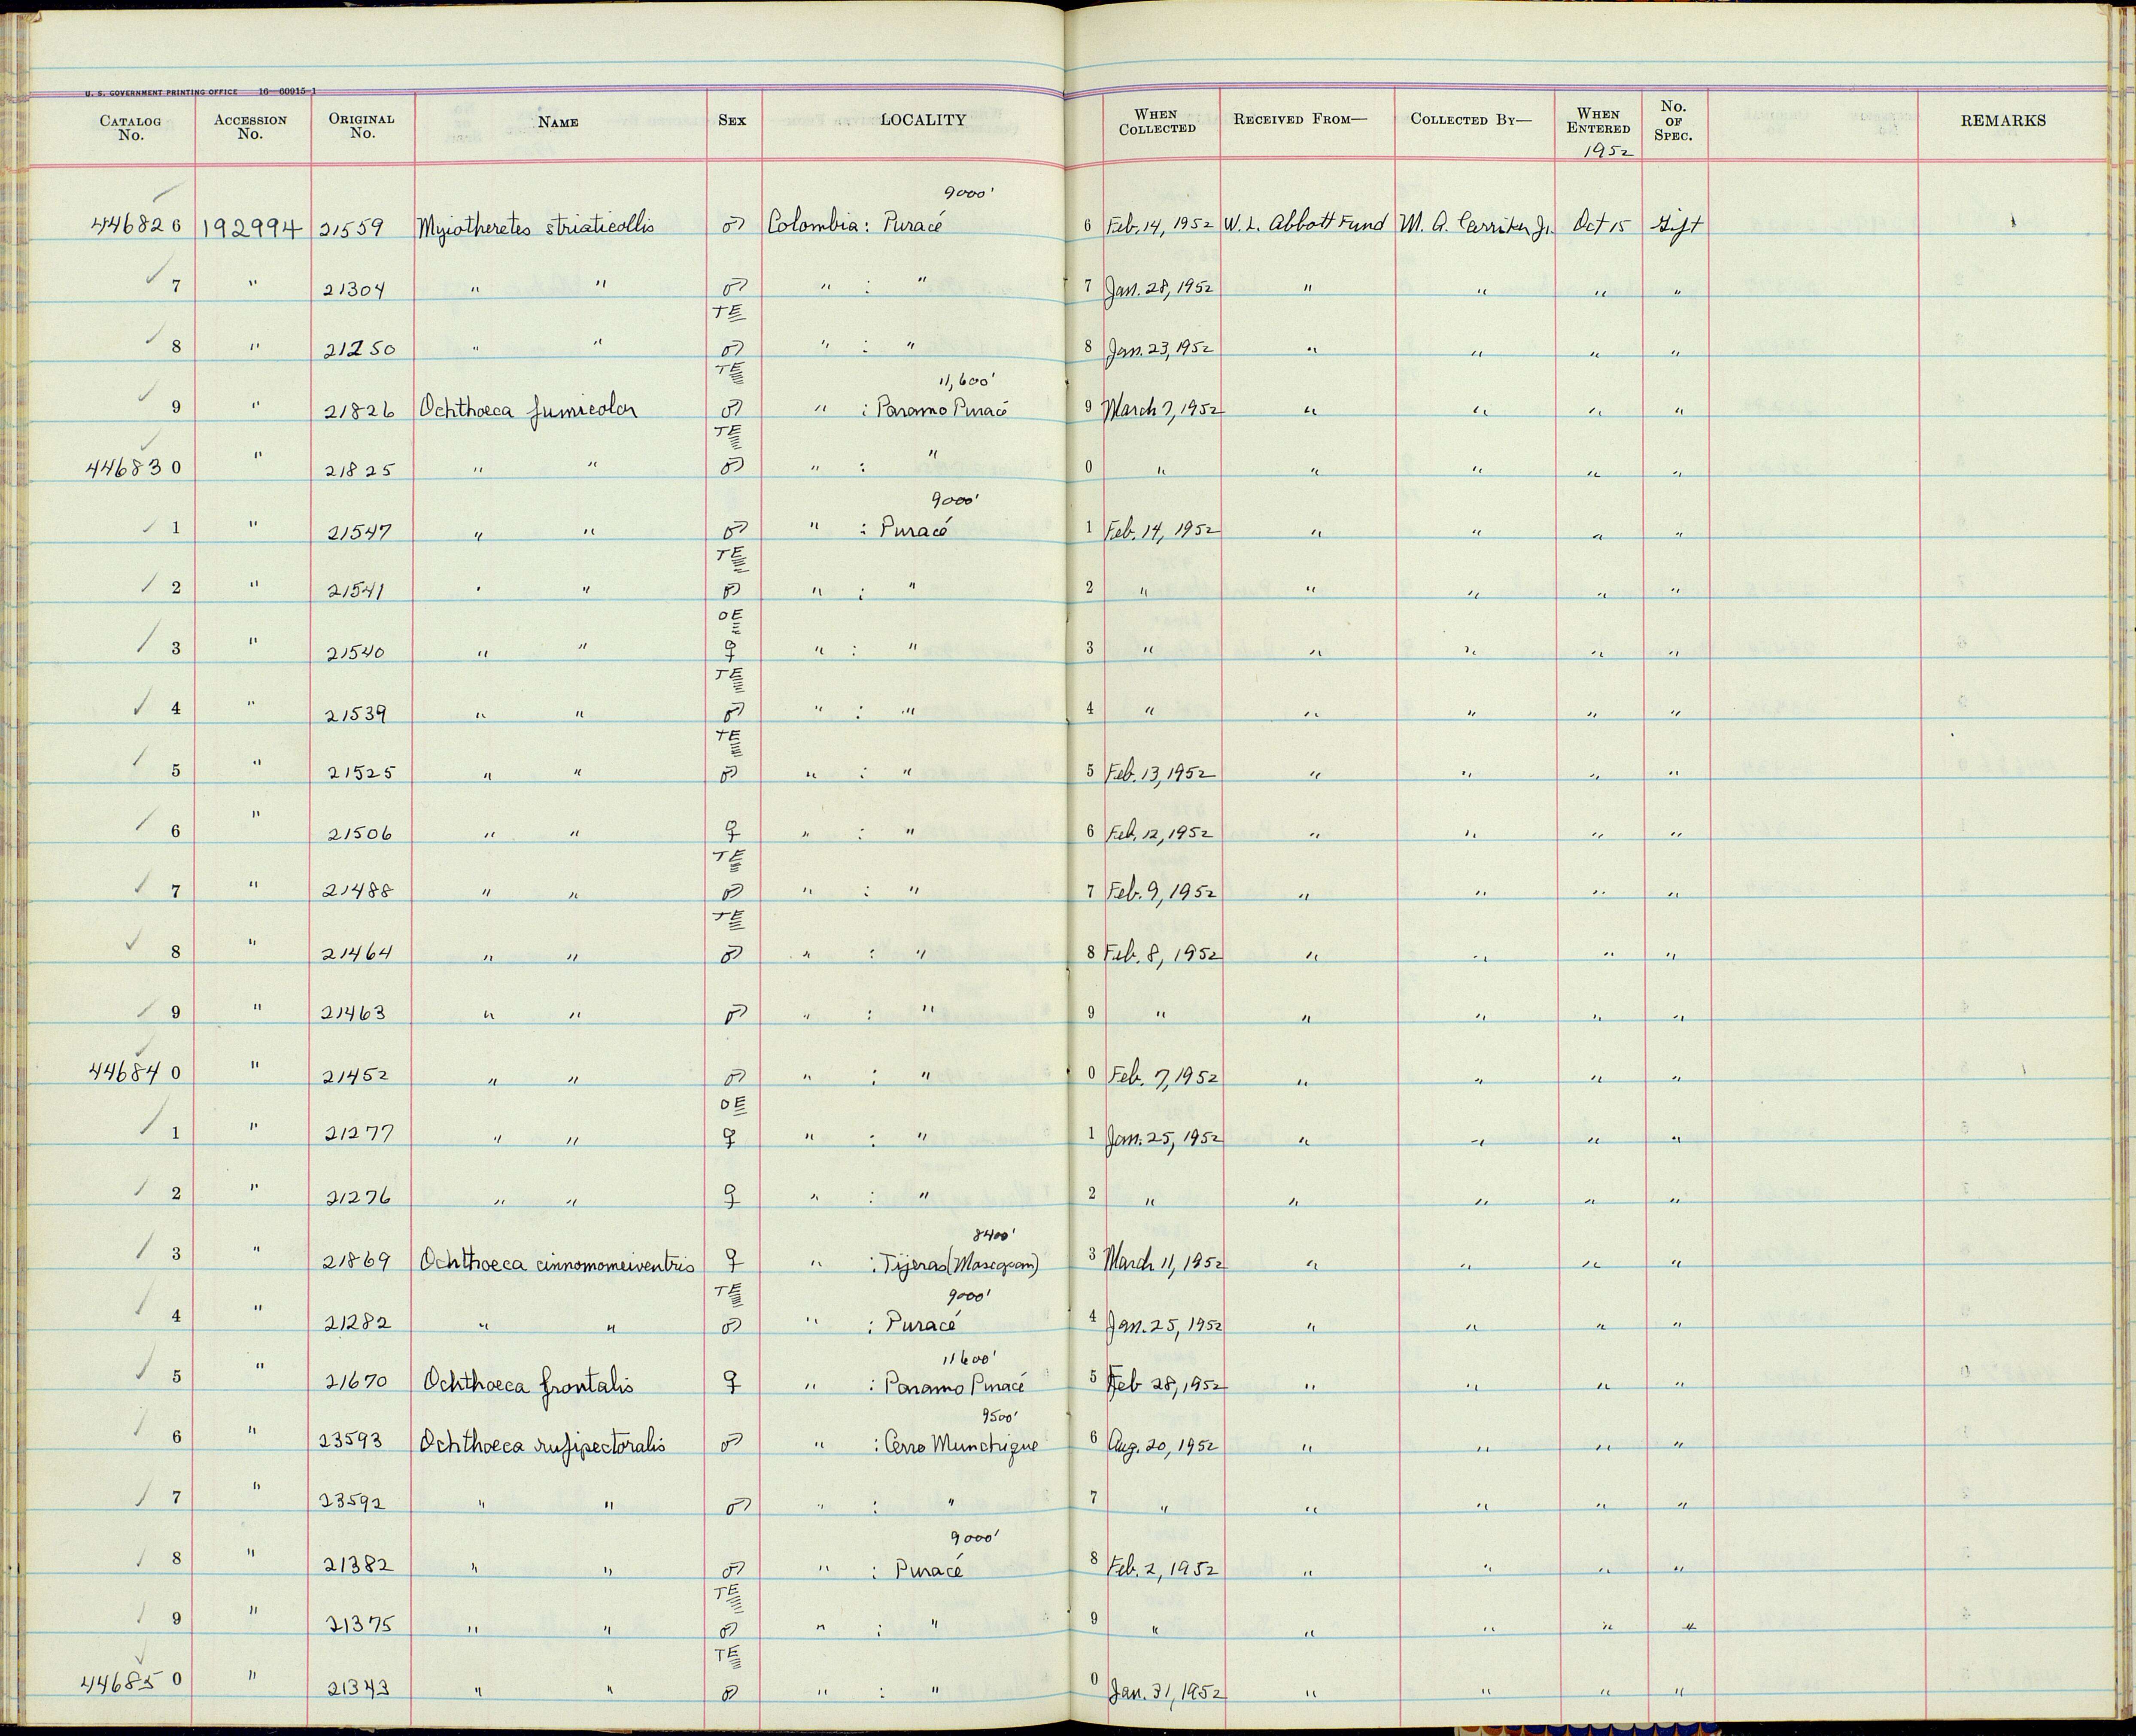 U. S. GOVERNMENT PRINTING OFFICE 16—60915-1
CATALOG No. ACCESSION No. ORIGINAL No. NAME SEX LOCALITY WHEN COLLECTED RECEIVED FROM— COLLECTED BY— WHEN ENTERED No. OF SPEC. REMARKS
1952
9000'
446826 192994 21559 Myiotheretes striaticollis ♂ Colombia: Puracé 6 Feb. 14, 1952 W. L. Abbott Fund M. A. Carriker Jr. Oct 15 Gift
7 " 21304 " " ♂ " : " 7 Jan. 28, 1952 " " " "
TE
8 " 21250 " " ♂ " : " 8 Jan. 23, 1952 " " " "
TE 11,600'
9 " 21826 Ochthoeca fumicolor ♂ " : Paramo Puracé 9 March 7, 1952 " " " "
TE
446830 " 21825 " " ♂ " : " 0 " " " " "
9000'
1 " 21547 " " ♂ " : Puracé 1 Feb. 14, 1952 " " " "
TE
2 " 21541 " " ♂ " : " 2 " " " " "
OE
3 " 21540 " " ♀ " : " 3 " " " " "
TE
4 " 21539 " " ♂ " : " 4 " " " " "
TE
5 " 21525 " " ♂ " : " 5 Feb. 13, 1952 " " " "
6 " 21506 " " ♀ " : " 6 Feb. 12, 1952 " " " "
TE
7 " 21488 " " ♂ " : " 7 Feb. 9, 1952 " " " "
TE
8 " 21464 " " ♂ " : " 8 Feb. 8, 1952 " " " "
9 " 21463 " " ♂ " : " 9 " " " " "
446840 " 21452 " " ♂ " : " 0 Feb. 7, 1952 " " " "
OE
1 " 21277 " " ♀ " : " 1 Jan. 25, 1952 " " " "
2 " 21276 " " ♀ " : " 2 " " " " "
8400'
3 " 21869 Ochthoeca cinnomomeiventris ♀ " : Tijeras (Moscopan) 3 March 11, 1952 " " " "
TE 9000'
4 " 21282 " " ♂ " : Puracé 4 Jan. 25, 1952 " " " "
11600'
5 " 21670 Ochthoeca frontalis ♀ " : Paramo Puracé 5 Feb 28, 1952 " " " "
9500'
6 " 23593 Ochthoeca rufipectoralis ♂ " : Cerro Munchique 6 Aug. 20, 1952 " " " "
7 " 23592 " " ♂ " : " 7 " " " " "
9000'
8 " 21382 " " ♂ " : Puracé 8 Feb. 2, 1952 " " " "
TE
9 " 21375 " " ♂ " : " 9 " " " " "
TE
446850 " 21343 " " ♂ " : " 0 Jan. 31, 1952 " " " "